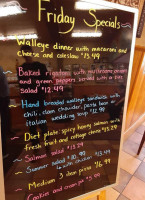 Friday Specials
Walleye dinner with macaroni and
cheese and coleslaw $13.49
Baked rigatoni with mushrooms onions
and green peppers served with a
salad $12.49
Hand breaded walleye sandwich with
chili, clam chowder, pasta bean or
italian wedding soup $12.99
Diet plate: spicy honey salmon with
fresh fruit and cottage cheese $13.49
Salmon salad $13.49
Summer salad $10.99
Medium 3 item pizza $16.99
Cookies and cream pie